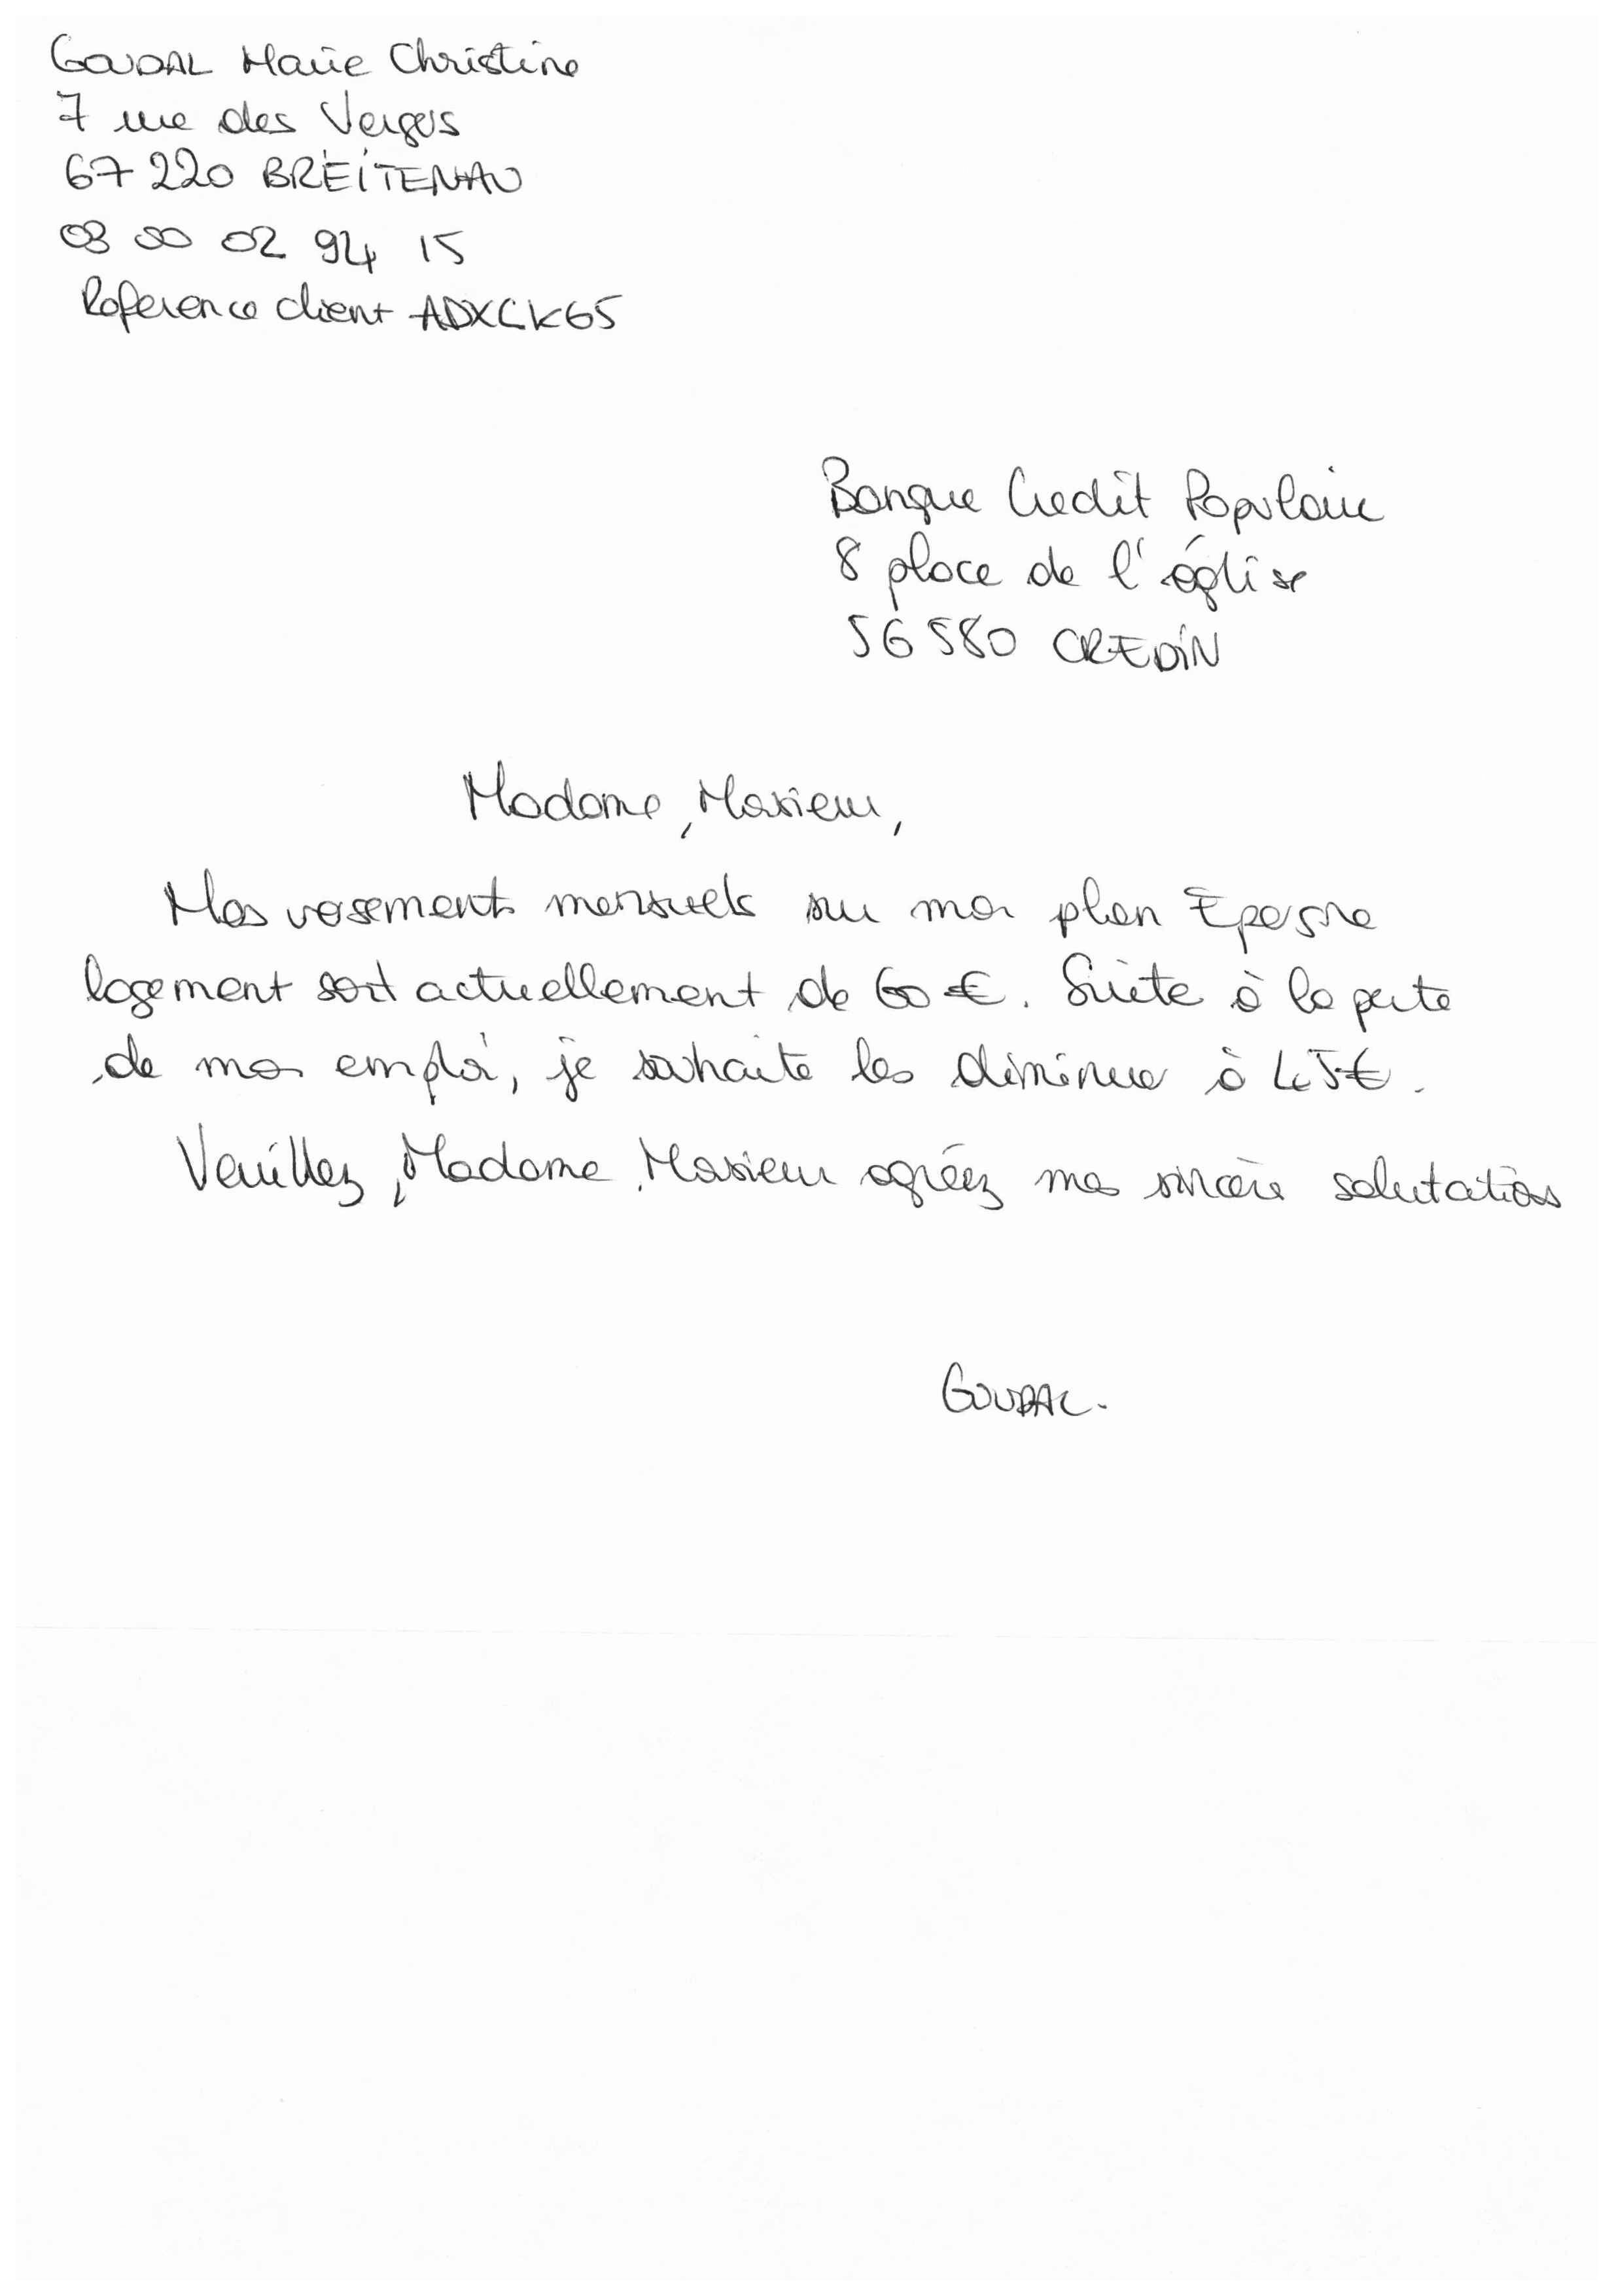 GOUDAL Marie Christine
7 rue des Vergers
67 220 BREITENAU
03 00 02 94 15
Reference client ADXCK65
Banque Credit Populaire
8 place de l'église
56 580 CREDIN
Madame, Monsieur,
Mes versements mensuels sur mon plan Epargne
logement sont actuellement de 60 €. Suite à la perte
de mon emploi, je souhaite les diminuer à 45€.
Veuillez, Madame, Monsieur agréez mes sincère salutations
GOUDAL.